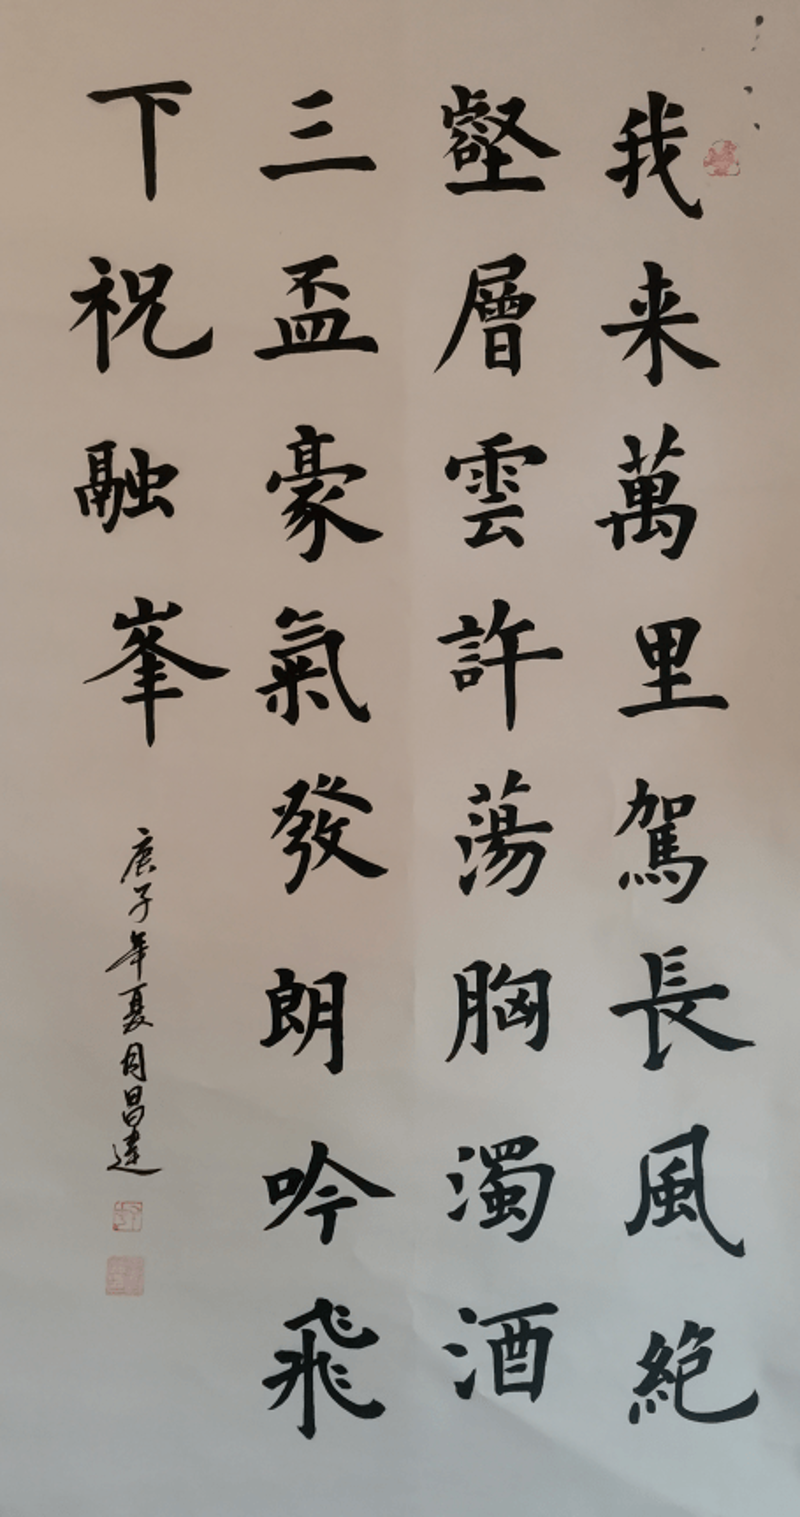 我来萬里駕長風絶
壑層雲許蕩胸濁酒
三盃豪氣發朗吟飛
下祝融峯
庚子年夏月昌達